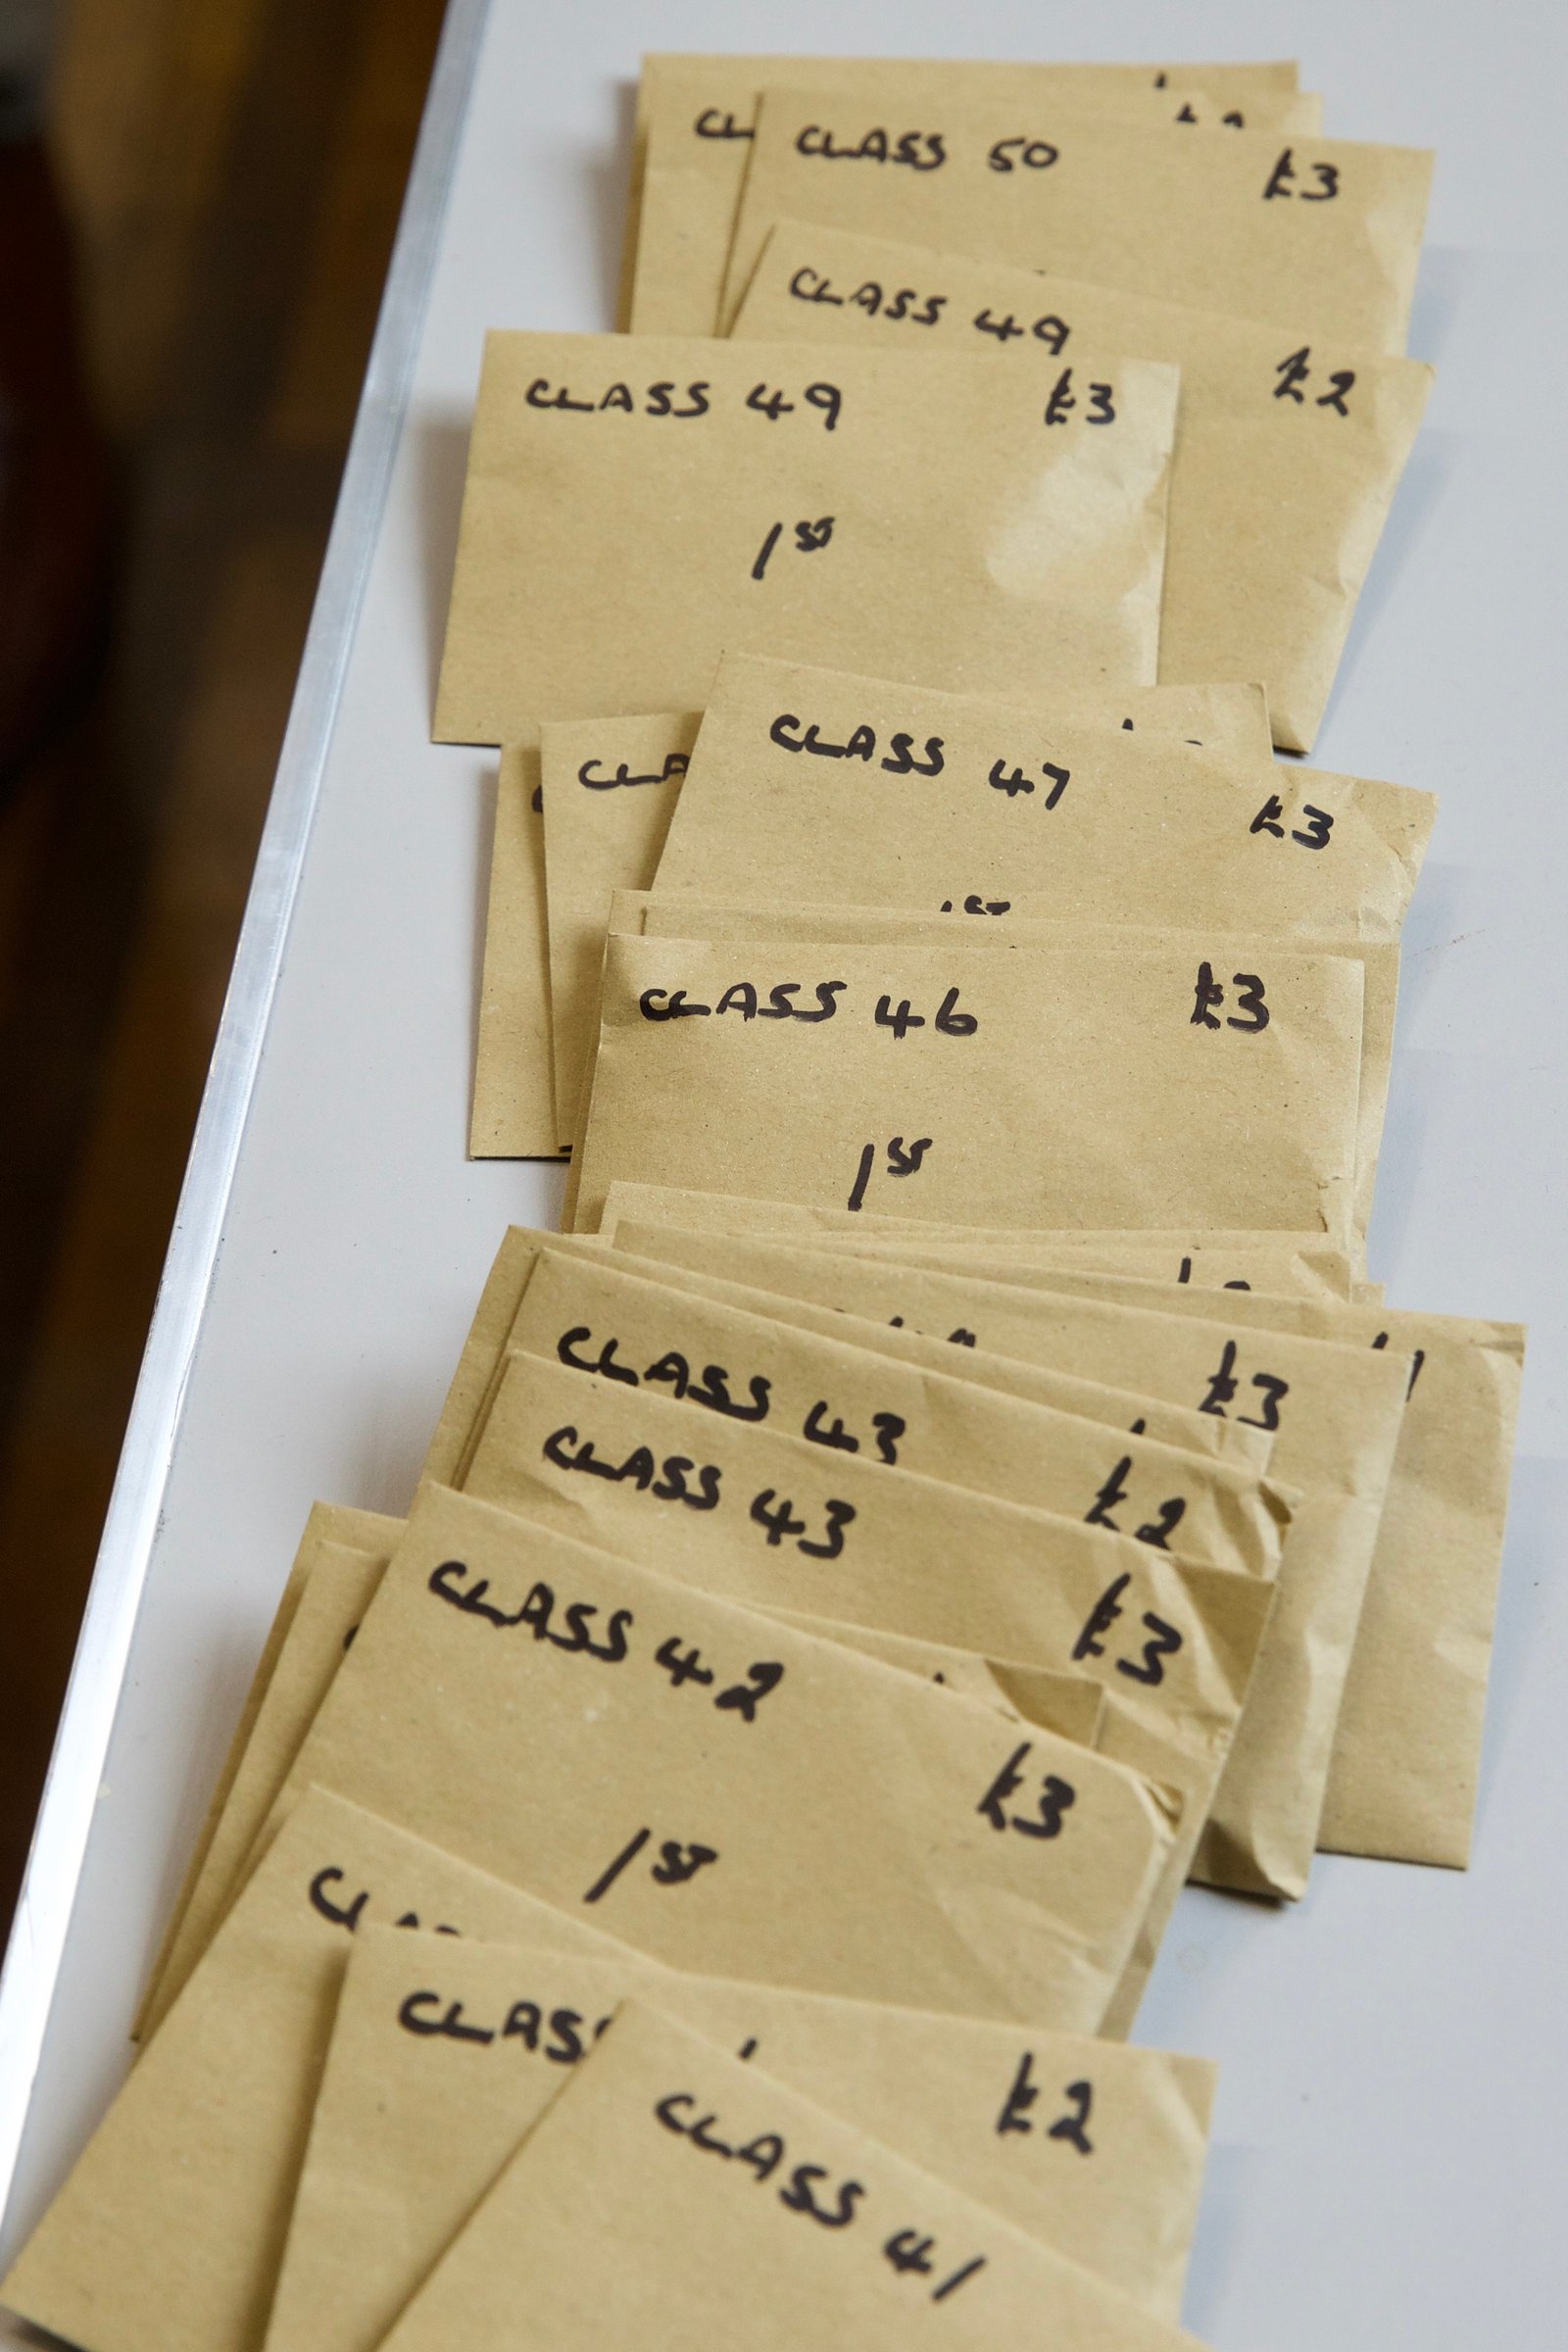 CLASS 50 £3
CLASS 49 £2
CLASS 49 £3
1ST
CLASS 47 £3
CLASS 46 £3
1ST
£3
CLASS 43 £2
CLASS 43 £3
CLASS 42 £3
1ST
CLASS £2
CLASS 41